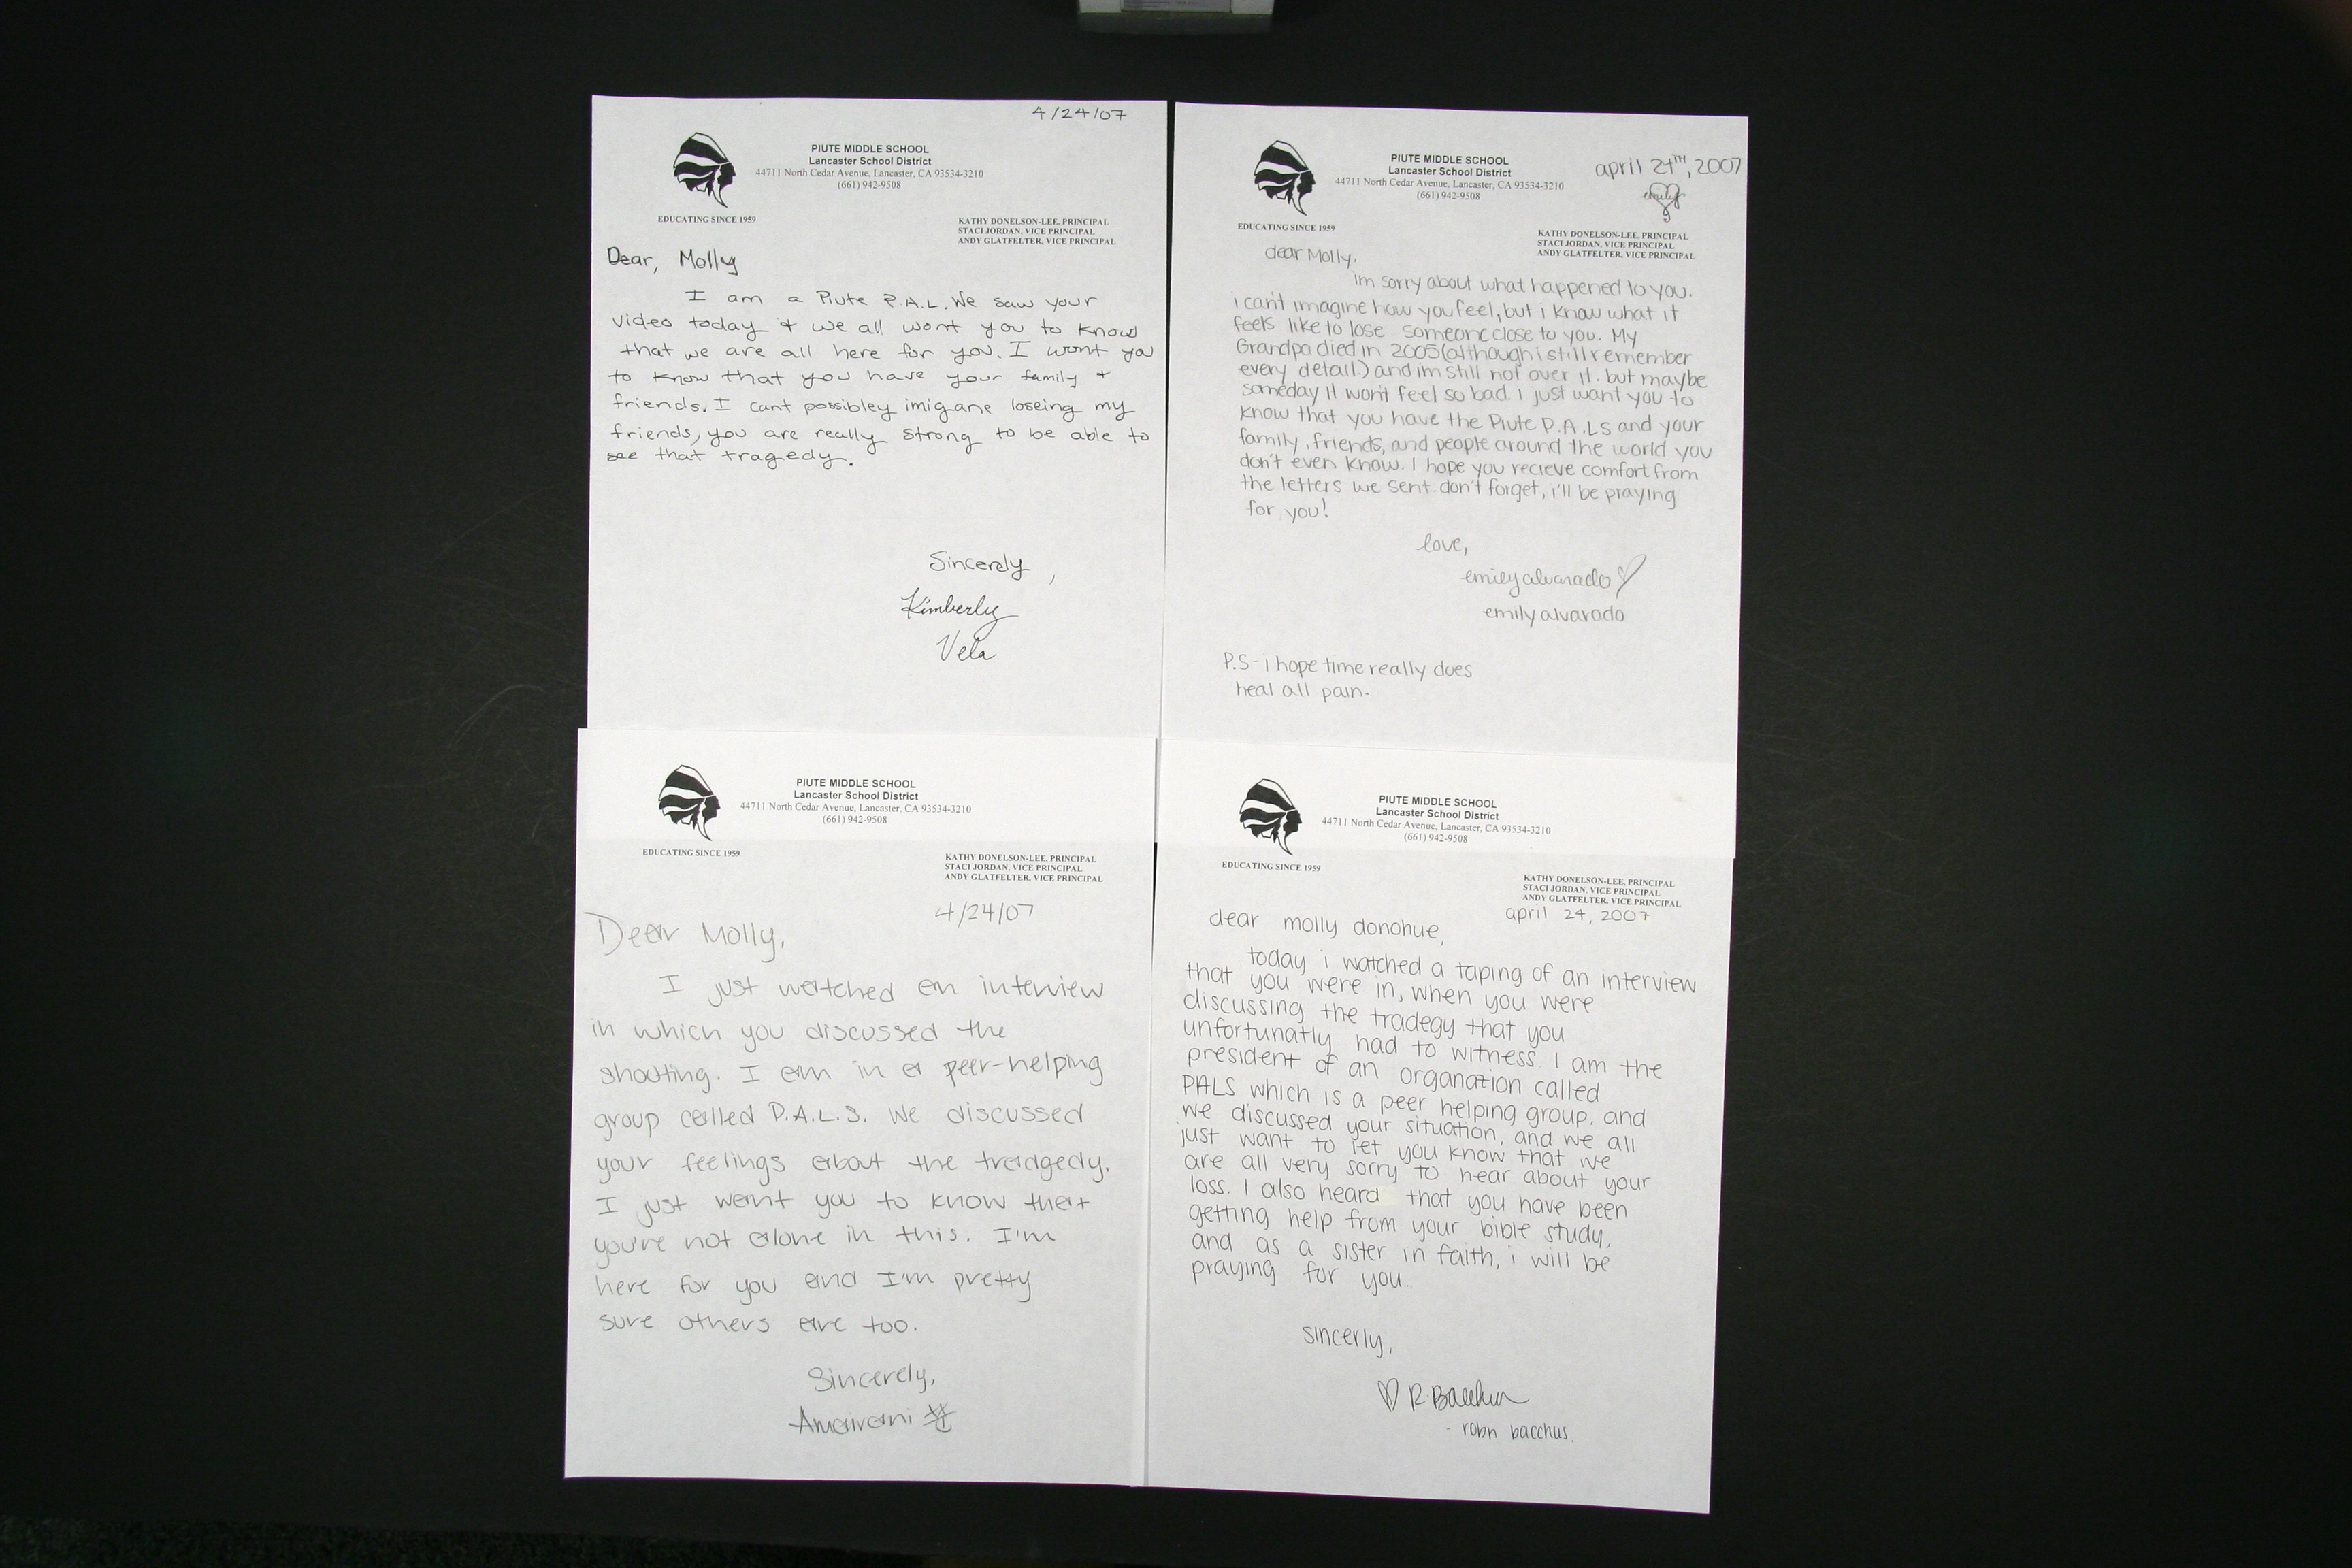 4/24/07
PIUTE MIDDLE SCHOOL
Lancaster School District
44711 North Cedar Avenue, Lancaster, CA 93534-3210
(661) 942-9508
EDUCATING SINCE 1959
KATHY DONELSON-LEE, PRINCIPAL
STACI JORDAN, VICE PRINCIPAL
ANDY GLATFELTER, VICE PRINCIPAL
Dear, Molly
I am a Piute P.A.L. We saw your
video today & we all wont you to know
that we are all here for you. I wont you
to know that you have your family +
friends. I cant possibley imigane loseing my
friends, you are really strong to be able to
see that tragedy.
Sincerely,
Kimberly
Vela
PIUTE MIDDLE SCHOOL
Lancaster School District
44711 North Cedar Avenue, Lancaster, CA 93534-3210
(661) 942-9508
april 24TH, 2007
emily
EDUCATING SINCE 1959
KATHY DONELSON-LEE, PRINCIPAL
STACI JORDAN, VICE PRINCIPAL
ANDY GLATFELTER, VICE PRINCIPAL
dear Molly,
im sorry about what happened to you.
i can't imagine how you feel, but i know what it
feels like to lose someone close to you. My
Grandpa died in 2005 (although i still remember
every detail.) and im still not over it. but maybe
someday it won't feel so bad. i just want you to
know that you have the Piute P.A.LS and your
family, friends, and people around the world you
don't even know. I hope you recieve comfort from
the letters we sent. don't forget, i'll be praying
for you!
love,
emily alvarado
emily alvarado
P.S- i hope time really does
heal all pain.
PIUTE MIDDLE SCHOOL
Lancaster School District
44711 North Cedar Avenue, Lancaster, CA 93534-3210
(661) 942-9508
EDUCATING SINCE 1959
KATHY DONELSON-LEE, PRINCIPAL
STACI JORDAN, VICE PRINCIPAL
ANDY GLATFELTER, VICE PRINCIPAL
4/24/07
Dear Molly,
I just watched an interview
in which you discussed the
shooting. I am in a peer-helping
group called P.A.L.S. We discussed
your feelings about the tradgedy.
I just want you to know that
you're not alone in this. I'm
here for you and I'm pretty
sure others are too.
Sincerely,
Amairani
PIUTE MIDDLE SCHOOL
Lancaster School District
44711 North Cedar Avenue, Lancaster, CA 93534-3210
(661) 942-9508
EDUCATING SINCE 1959
KATHY DONELSON-LEE, PRINCIPAL
STACI JORDAN, VICE PRINCIPAL
ANDY GLATFELTER, VICE PRINCIPAL
april 24, 2007
dear molly donohue,
today i watched a taping of an interview
that you were in, when you were
discussing the tradegy that you
unfortunatly had to witness. I am the
president of an organation called
PALS which is a peer helping group, and
we discussed your situation, and we all
just want to let you know that we
are all very sorry to hear about your
loss. I also heard that you have been
getting help from your bible study,
and as a sister in faith, i will be
praying for you.
sincerly,
R. Bacchus
- robn bacchus.